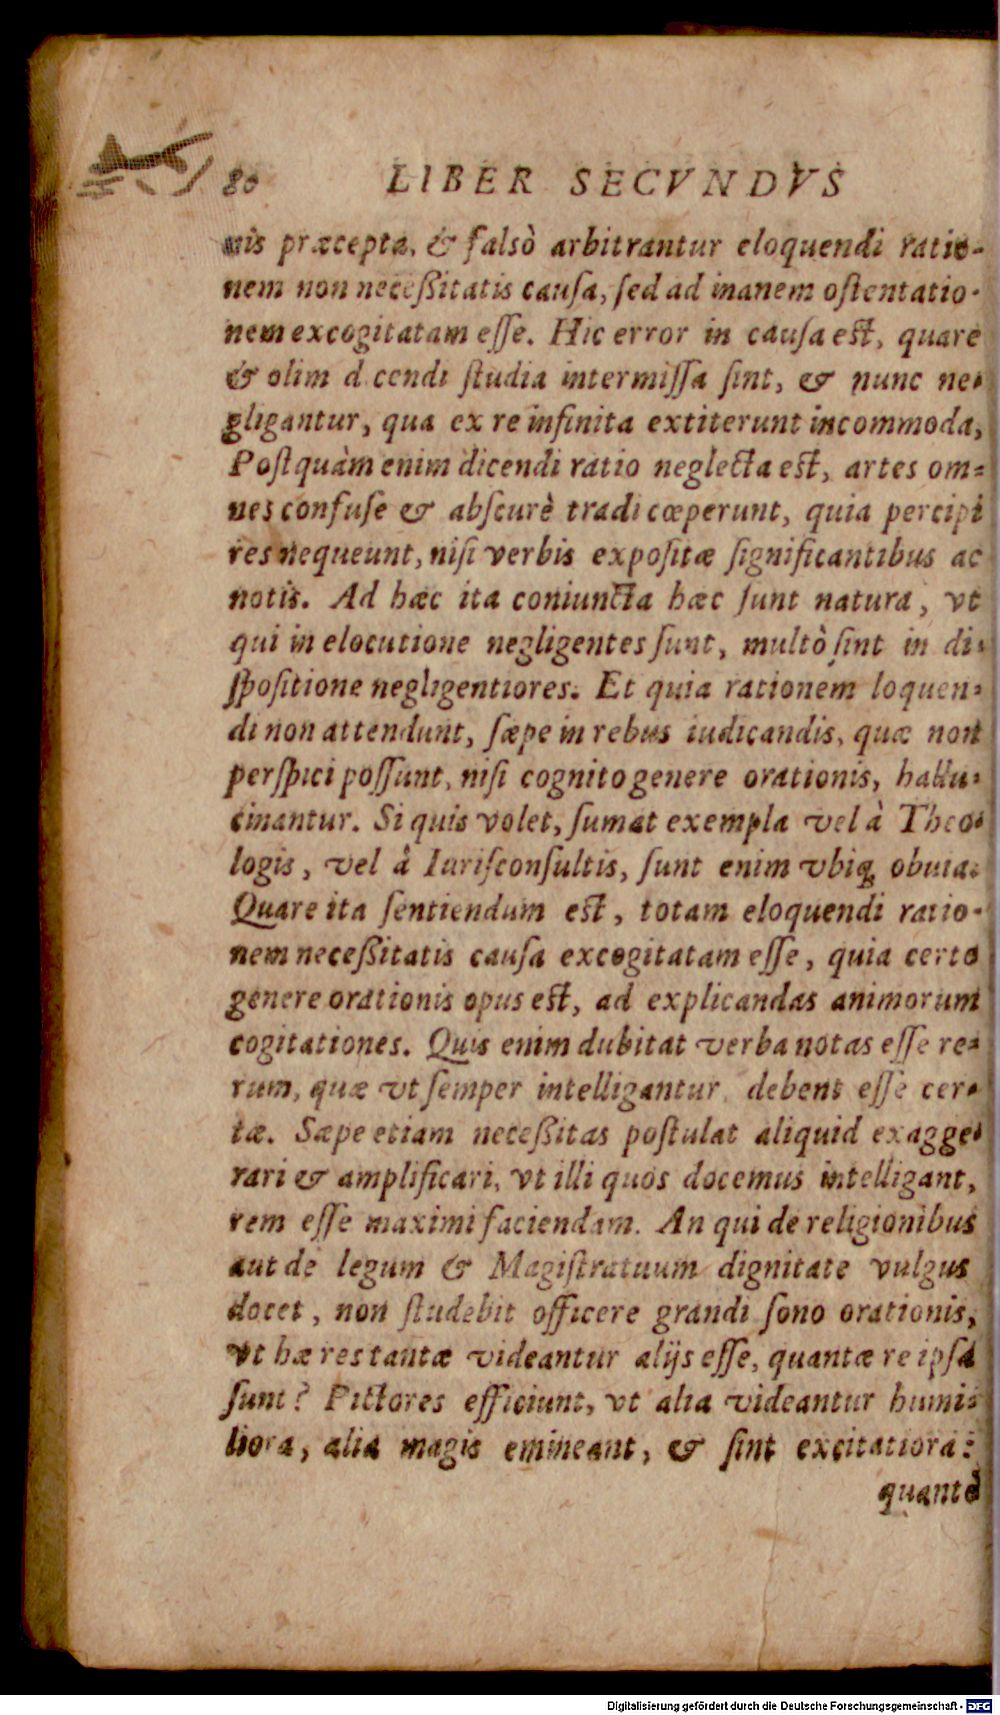 80 LIBER SECVNDVS
nis præcepta, & falsò arbitrantur eloquendi ratio-
nem non neceßitatis causa, sed ad inanem ostentatio-
nem excogitatam esse. Hic error in causa est, quare
& olim d cendi studia intermissa sint, & nunc ne-
gligantur, qua ex re infinita extiterunt incommoda,
Postquàm enim dicendi ratio neglecta est, artes om-
nes confuse & abscurè tradi cœperunt, quia percipi
res nequeunt, nisi verbis expositæ significantibus ac
notis. Ad hæc ita coniuncta hæc sunt natura, vt
qui in elocutione negligentes sunt, multò sint in di-
spositione negligentiores. Et quia rationem loquen-
di non attendunt, sæpe in rebus iudicandis, quæ non
perspici possunt, nisi cognito genere orationis, hallu-
cinantur. Si quis volet, sumat exempla vel à Theo-
logis, vel à Iurisconsultis, sunt enim vbiq; obuia.
Quare ita sentiendum est, totam eloquendi ratio-
nem neceßitatis causa excogitatam esse, quia certo
genere orationis opus est, ad explicandas animorum
cogitationes. Quis enim dubitat verba notas esse re-
rum, quæ vt semper intelligantur, debent esse cer-
tæ. Sæpe etiam neceßitas postulat aliquid exagge-
rari & amplificari, vt illi quos docemus intelligant,
rem esse maximi faciendam. An qui de religionibus
aut de legum & Magistratuum dignitate vulgus
docet, non studebit officere grandi sono orationis,
vt hæ res tantæ videantur alijs esse, quantæ re ipsa
sunt? Pictores efficiunt, vt alia videantur humi-
liora, alia magis emineant, & sint excitatiora:
quantò
Digitalisierung gefördert durch die Deutsche Forschungsgemeinschaft - DFG